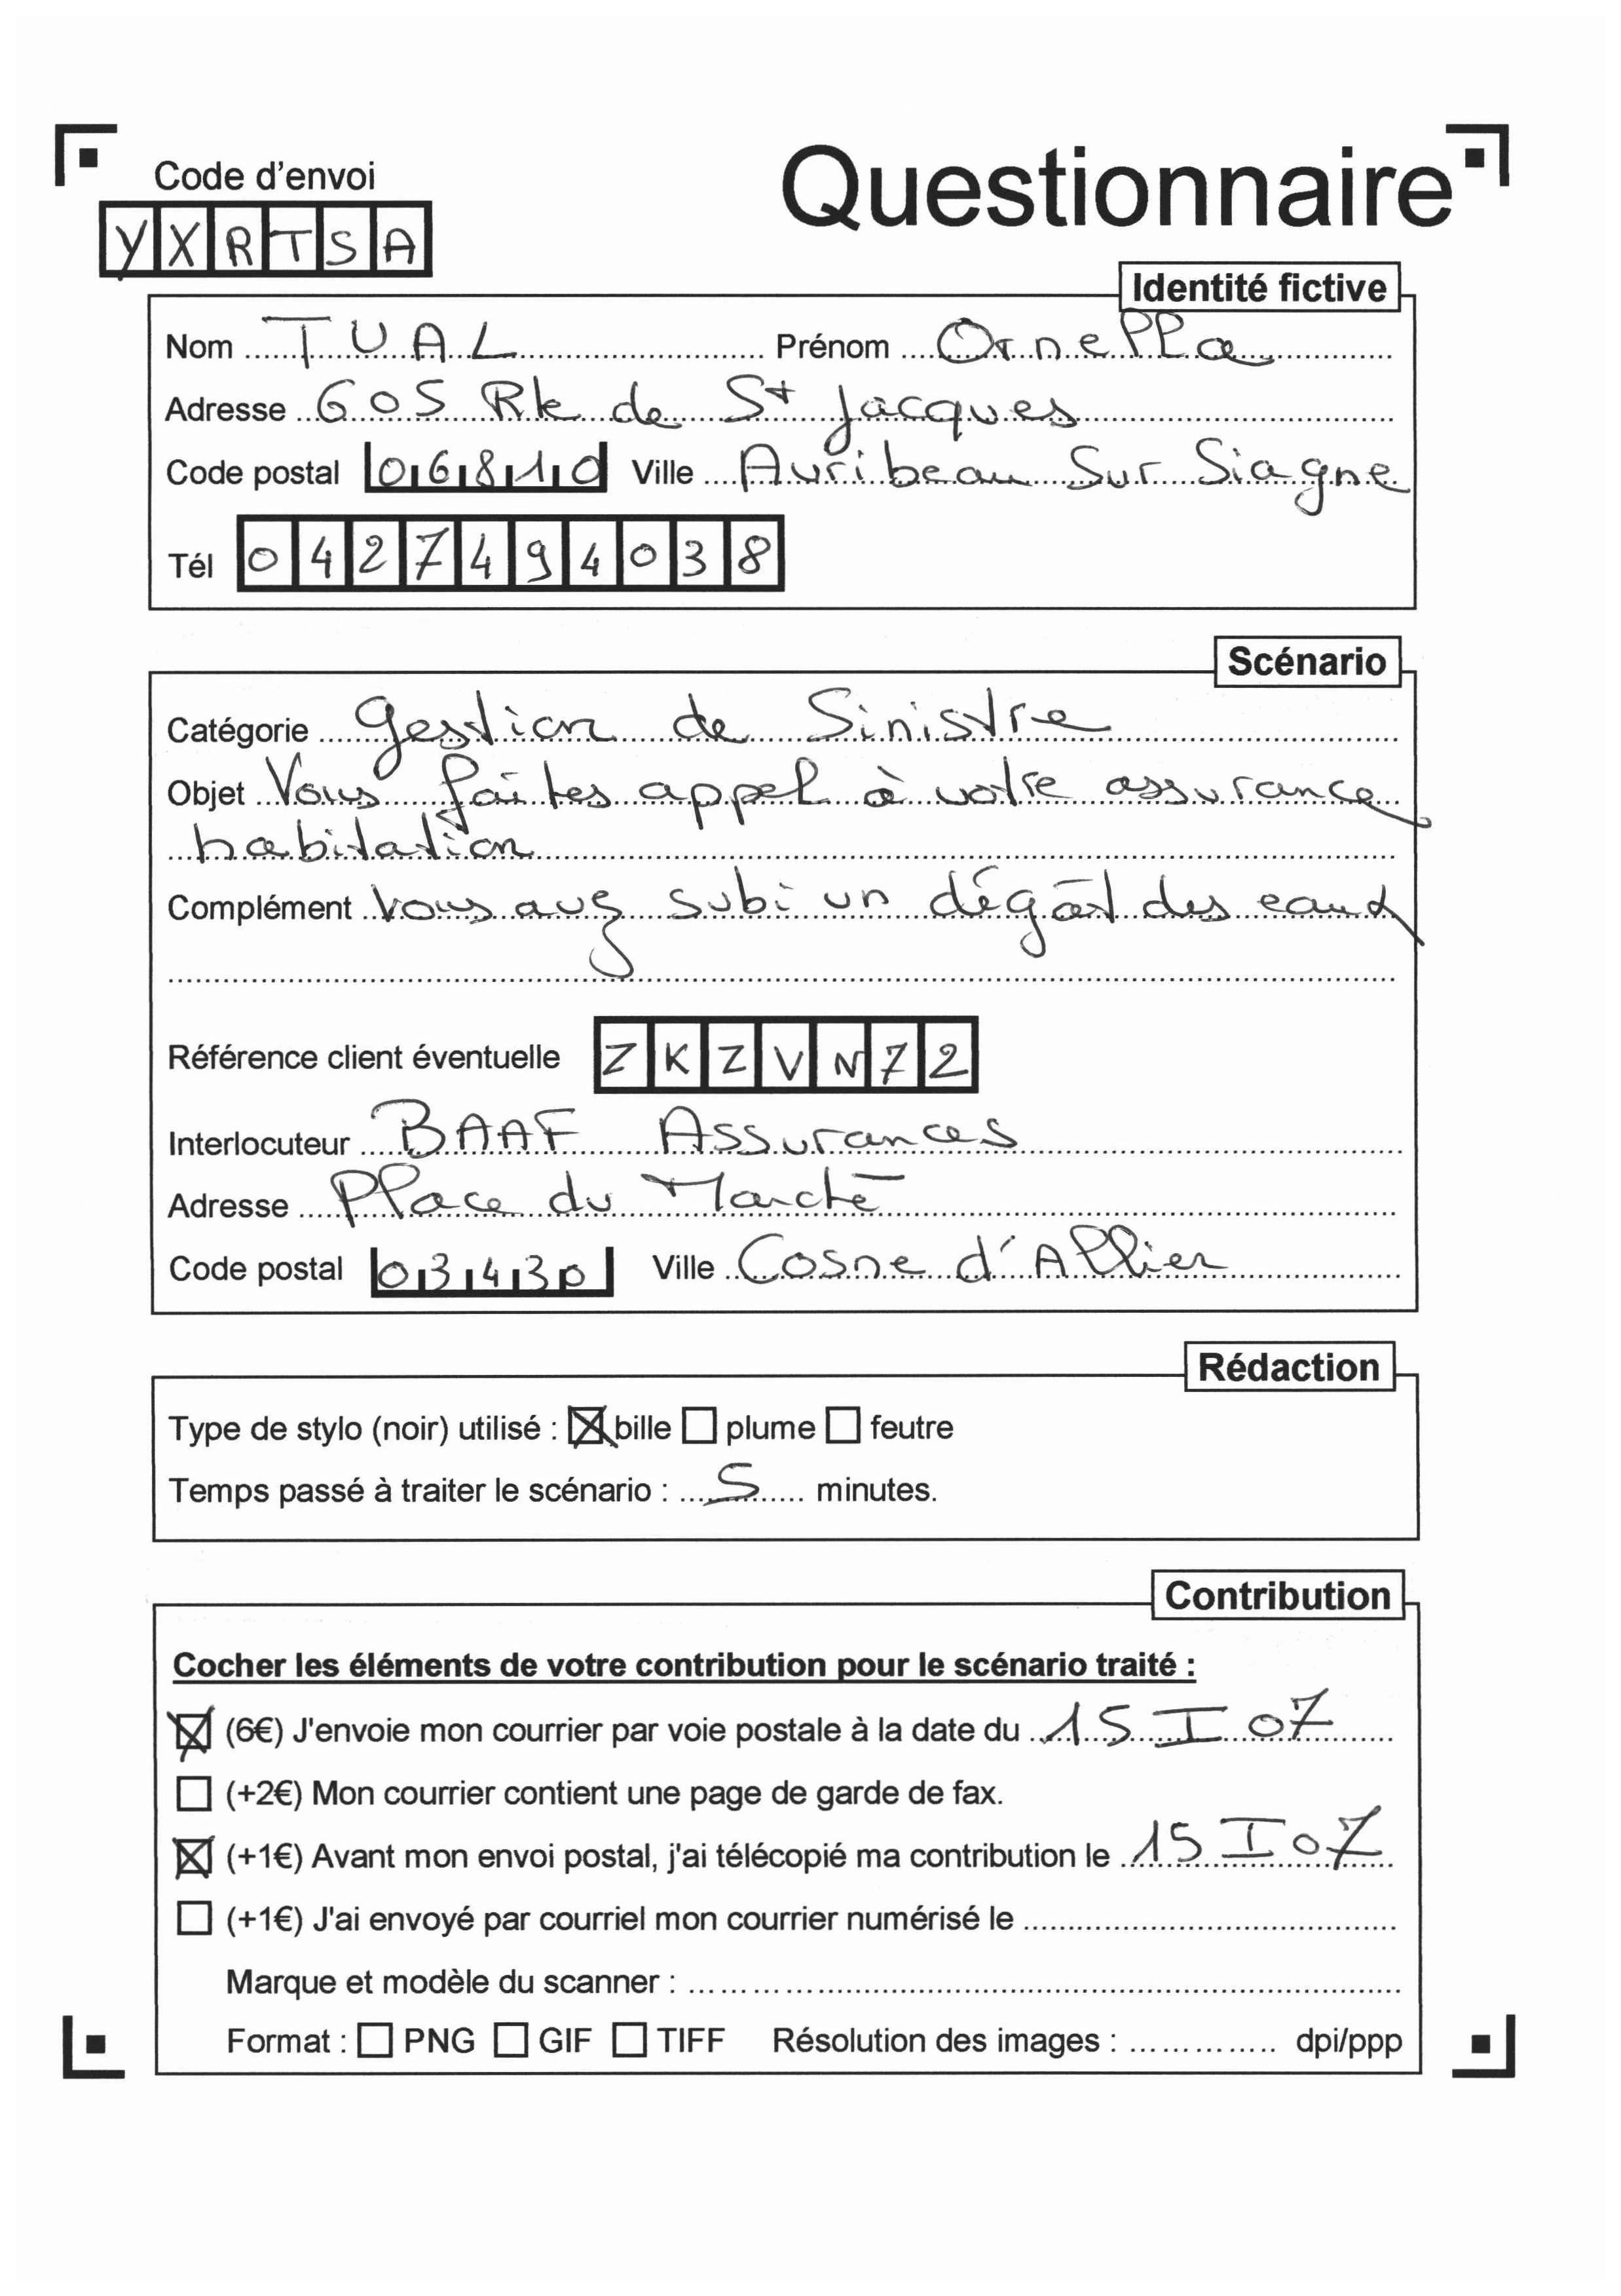 Code d'envoi
Questionnaire
YXRTSA
Identité fictive
Nom TUAL Prénom Ornella
Adresse 605 Rte de St Jacques
Code postal 06810 Ville Auribeau Sur Siagne
Tél 0427494038
Scénario
Catégorie gestion de Sinistre
Objet Vous faites appel à votre assurance
habitation
Complément Vous avez subi un dégât des eaux
Référence client éventuelle ZKZVN72
Interlocuteur BAAF Assurances
Adresse Place du Marché
Code postal 03430 Ville Cosne d'Allier
Rédaction
Type de stylo (noir) utilisé : bille plume feutre
Temps passé à traiter le scénario : 5 minutes.
Contribution
Cocher les éléments de votre contribution pour le scénario traité :
(6€) J'envoie mon courrier par voie postale à la date du 15 I 07
(+2€) Mon courrier contient une page de garde de fax.
(+1€) Avant mon envoi postal, j'ai télécopié ma contribution le 15 I 07
(+1€) J'ai envoyé par courriel mon courrier numérisé le
Marque et modèle du scanner :
Format : PNG GIF TIFF Résolution des images : dpi/ppp